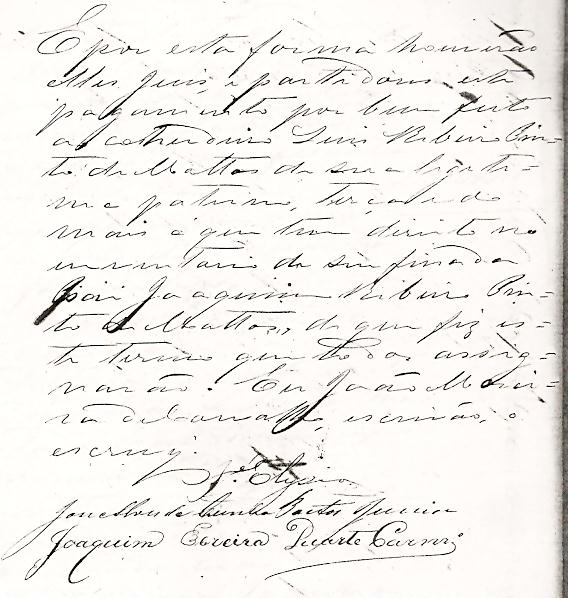 E por esta forma houverão
elles Juis, e partidores este
pagamento por bem feito
ao co herdeiro Luis Ribeiro Pin=
to de Mattos da sua legiti=
ma paterna, terça e do
mais a que tem direito no
inventario do seu finado
Pai Joaquim Ribeiro Pin=
to de Mattos, do que fiz es=
te termo que todos assig=
narão. Eu João Morei=
ra de Carvalho, escrivão, o
escrevi.
Joaquim Pereira Duarte Carnrº